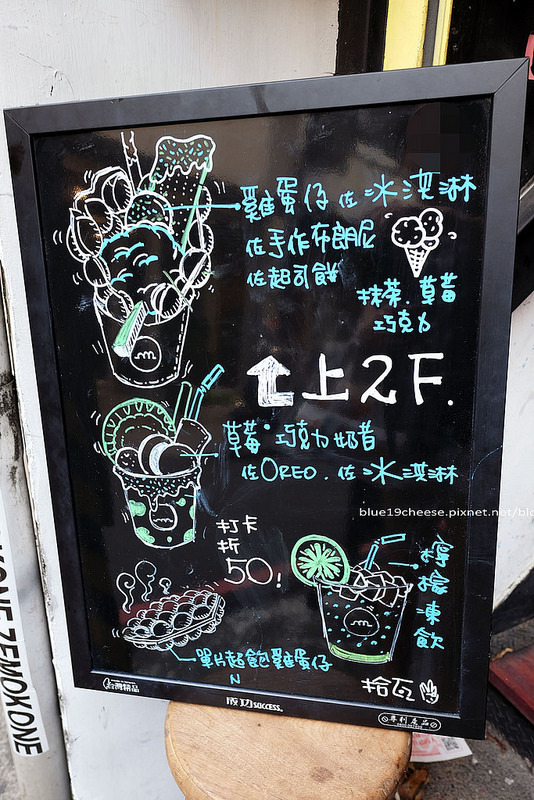 雞蛋仔 佐 冰淇淋
佐手作布朗尼
佐起司餅
抹茶.草莓
巧克力
上2F.
草莓·巧克力奶昔
佐OREO.佐冰淇淋
blue19cheese.pixnet.net/blo
打卡
折
50!
檸檬凍飲
單片超飽雞蛋仔
N
拾瓦
台灣精品
成功 SUCCESS.
專利產品
KONE ZEMOKONE